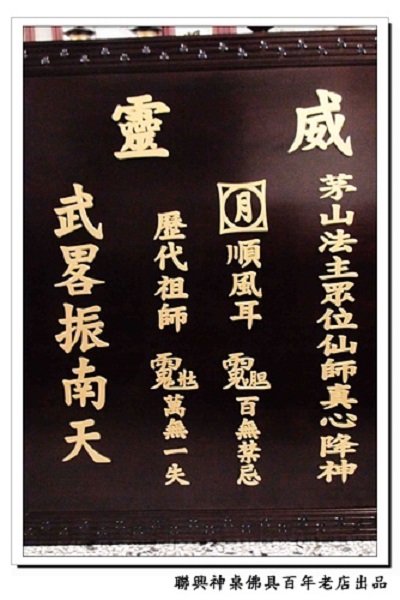 威靈
茅山法主眾位仙師真心降神
月順風耳 百無禁忌
歷代祖師 萬無一失
武畧振南天
聯興神桌佛具百年老店出品